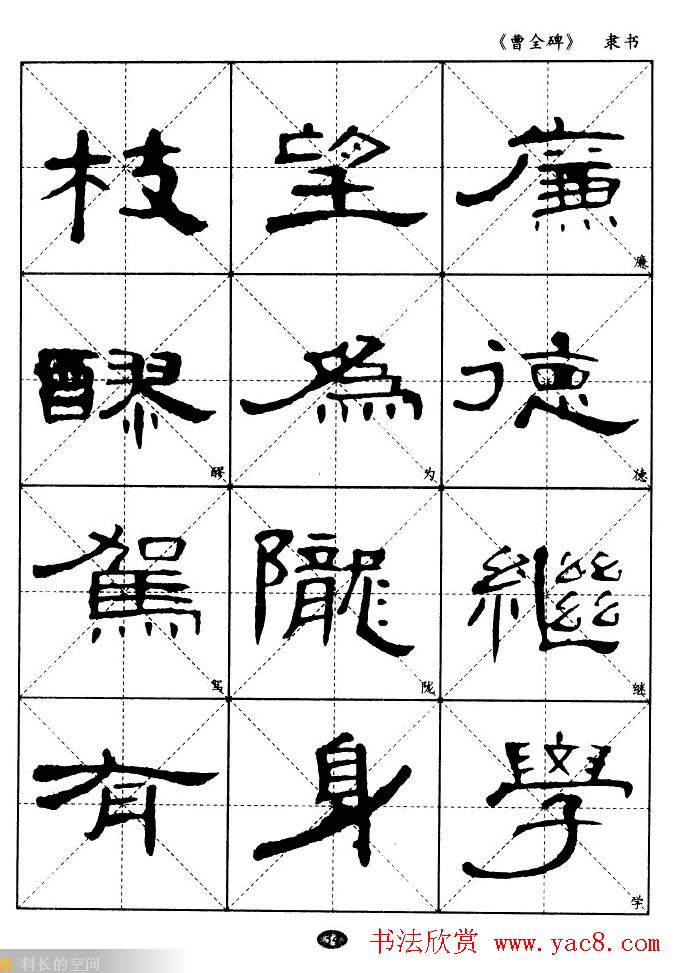 《曹全碑》 隶书
枝 望 廉
廉
醪 為 德
醪 为 德
駕 隴 繼
驾 陇 继
有 身 學
学
书法欣赏 www.yac8.com
科长的空间